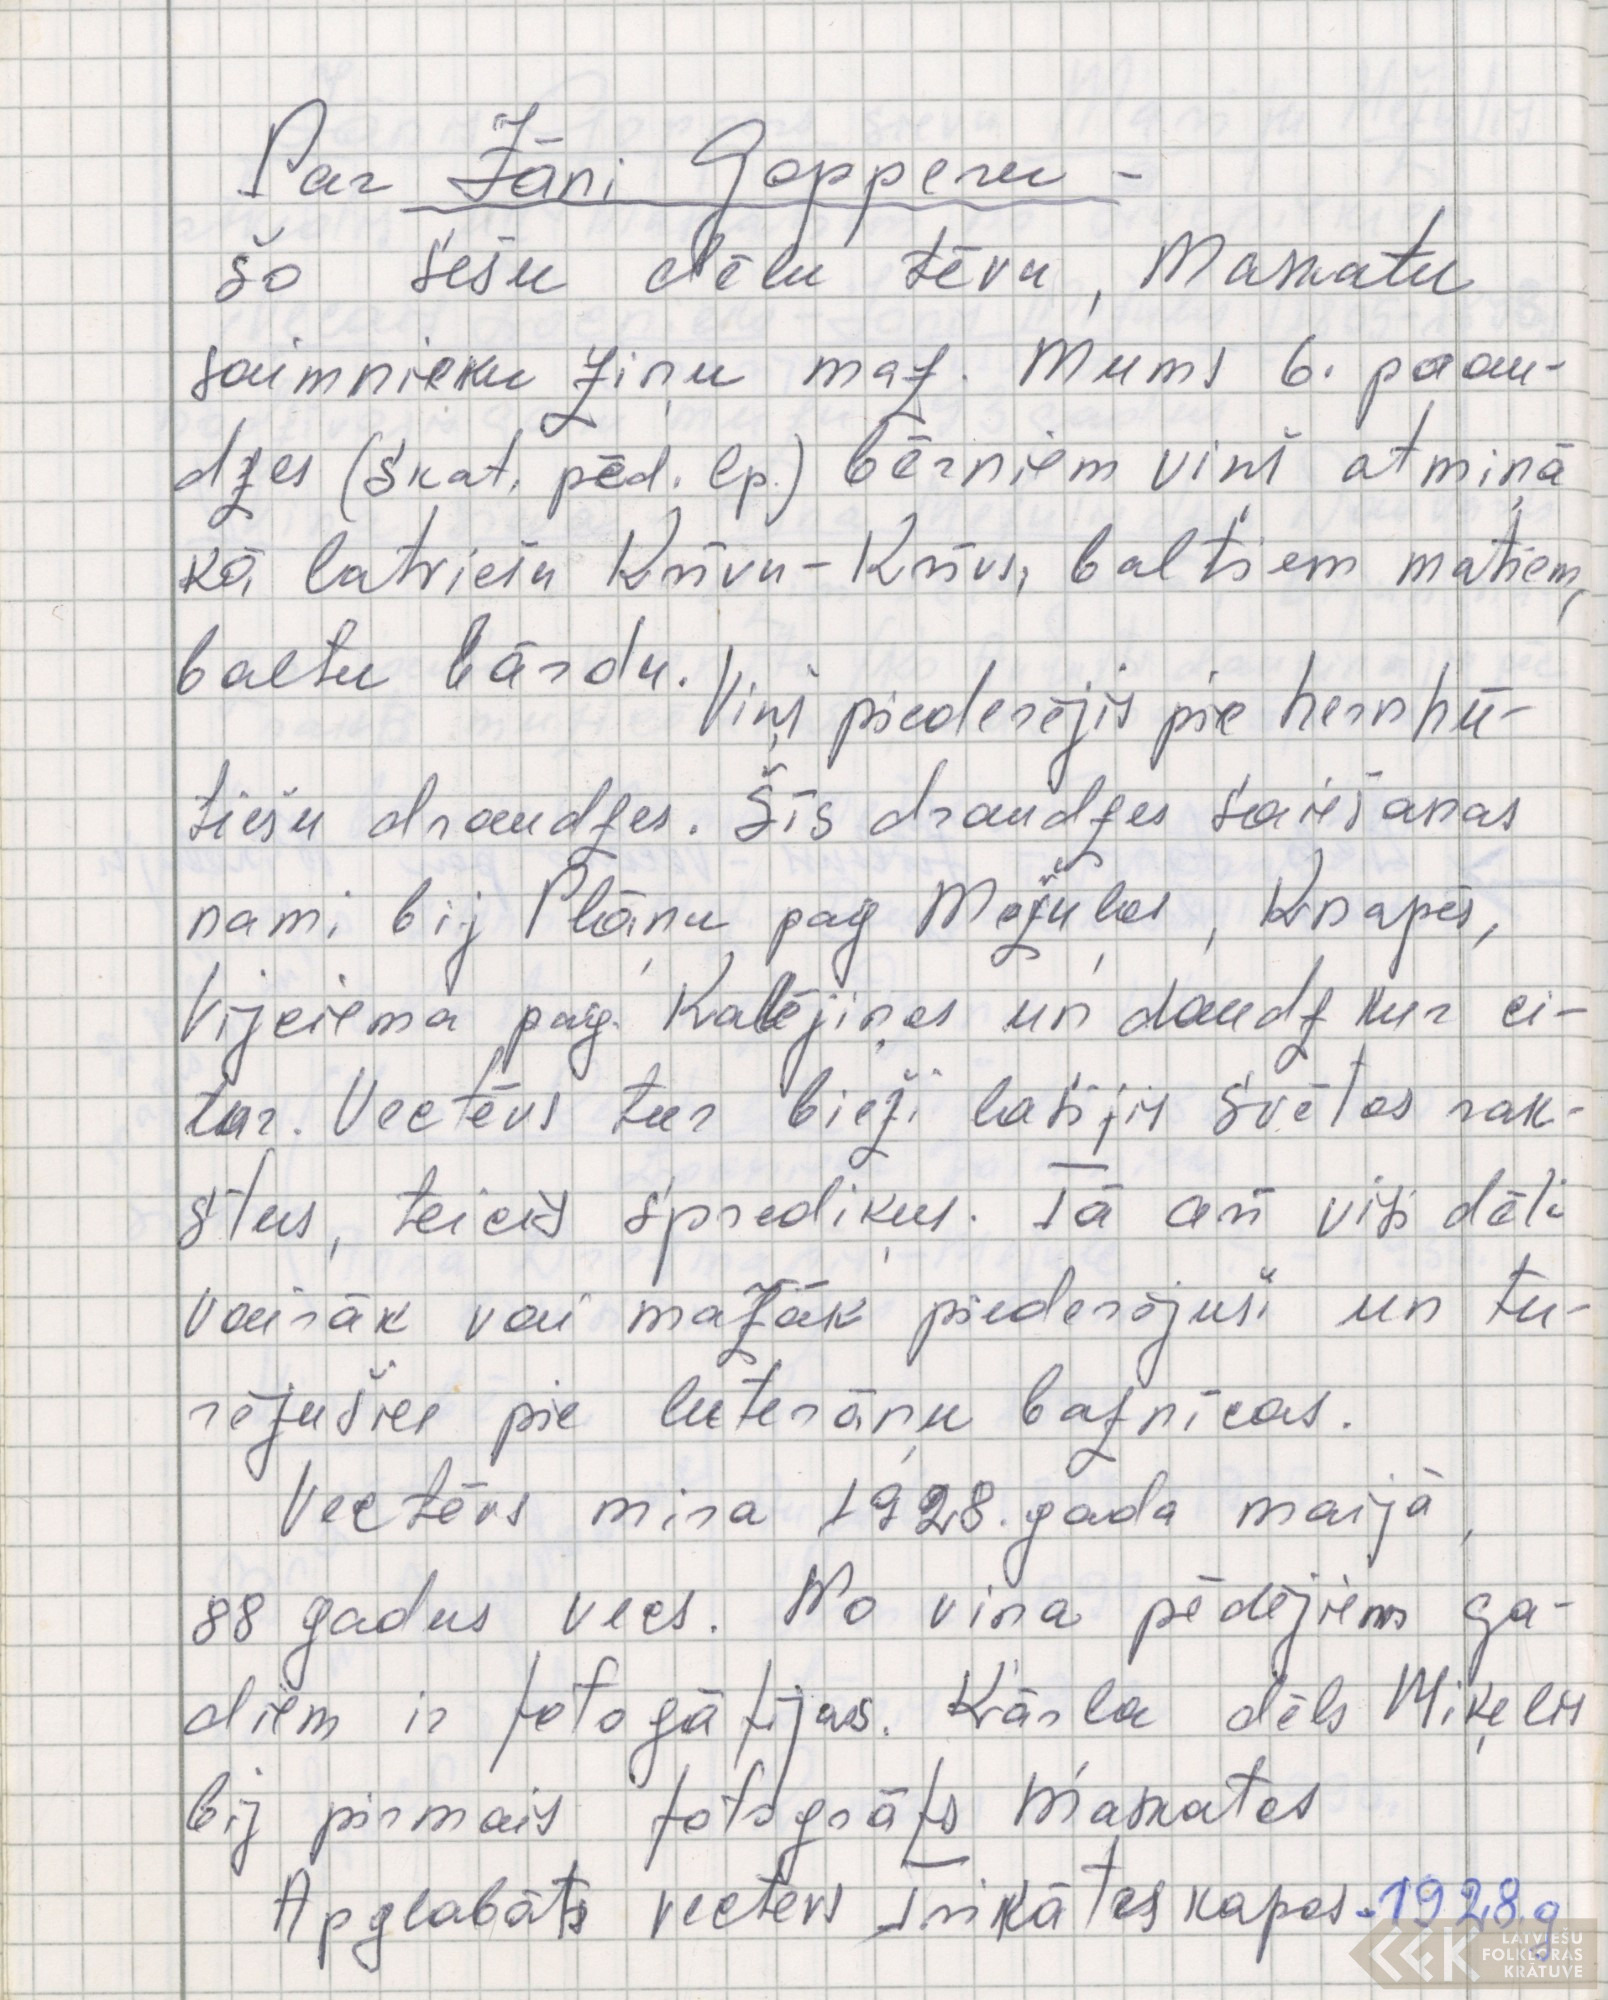 Par Jāni Gopperu -
šo sešu dēlu tēvu, Maskatu
saimnieku ziņu maz. Mums 6. paau-
dzes (skat. pēd. lp.) bērniem viņš atmiņā
kā latviešu Krīvu-Krīvs, baltiem matiem,
baltu bārdu. Viņš piederējis pie hernhū-
tiešu draudzes. Šīs draudzes saiešanas
nami bij Plāņu pag Mežuļos, Knapēs,
Vijciema pag. Kalējiņos un daudz kur ci-
tur. Vectēvs tur bieži lasījis svētos rak-
stus, teicis sprediķus. Tā arī visi dēli
vairāk vai mazāk piederējuši un tu-
rējušies pie luterāņu baznīcas.
Vectēvs mira 1928. gada maijā,
88 gadus vecs. No viņa pēdējiem ga-
diem ir fotogāfijas. Kārļa dēls Miķelis
bij pirmais fotogrāfs Maskatos
Apglabāts vectēvs Trikātes kapos - 1928.g
LATVIEŠU
FOLKLORAS
KRĀTUVE